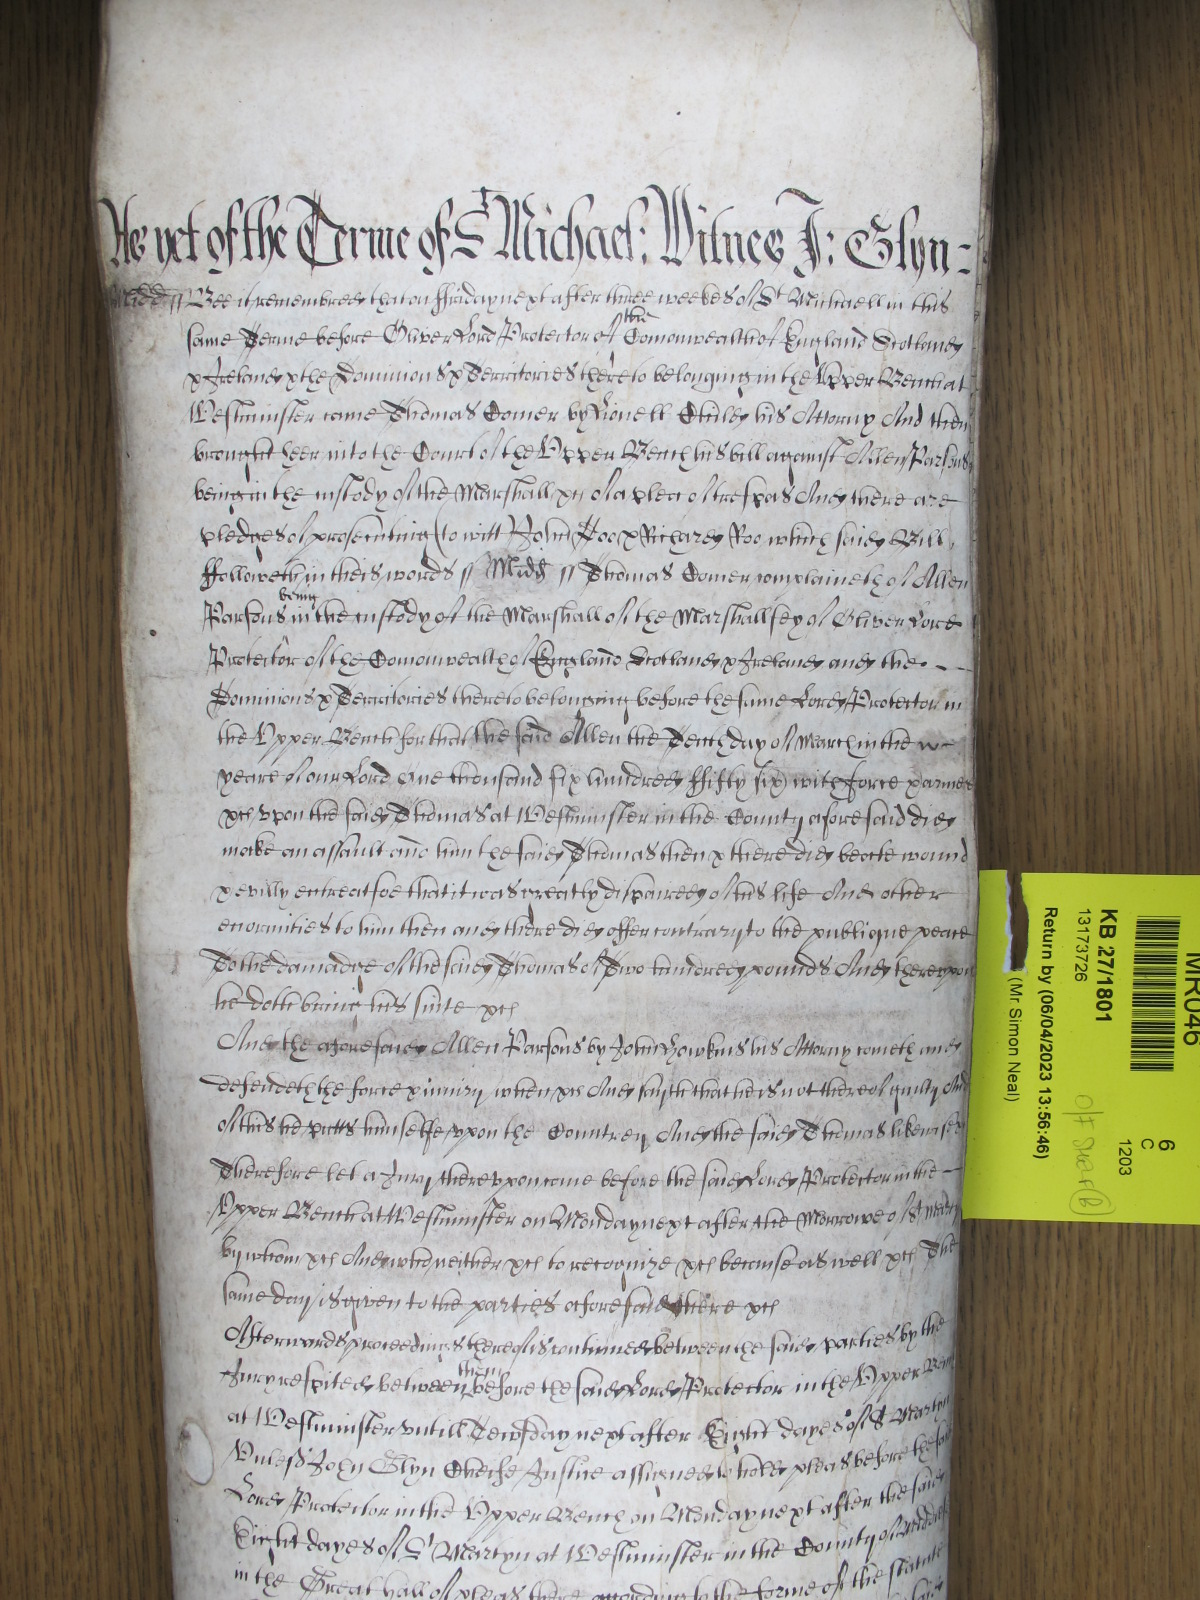 As yet of the Terme of St Michael: Witnes J: Glyn =
Midd // Bee it remembred that on ffriday next after three weekes of St Michaell in this
same Terme before Oliver Lord Protector of the Comonwealth of England Scotland
& Ireland & the Dominions & Territories thereto belonging in the Upper Bench at
Westminster came Thomas Comer by Lionell his Attorny And then
brought heer into the Court of the Upper Bench his bill against Allen Parsons
being in the custody of the Marshall &c of a plea of trespas And there are
pledges of prosecuting (to witt) John Doo & Richard Roo which said Bill
ffolloweth in theis words // Midd // Thomas Comer complaineth of Allen
Parsons being in the custody of the Marshall of the Marshallsey of Oliver Lord
Protector of the Comonwealth of England Scotland & Ireland and the
Dominions & Territories thereto belonging before the same Lord Protector in
the Upper Bench for that the said Allen the Tenth day of March in the
yeare of our Lord One thousand six hundred ffifty six with force & armes
&c upon the said Thomas at Westminster in the County aforesaid did
make an assault and him the said Thomas then & there did beate wound
& evilly entreat soe that it was greatly dispaired of his life And other
enormities to him then and there did offer contrary to the publique peace
To the damadge of the said Thomas of Two hundred pounds And thereupon
he doth bring his suite &c
And the aforesaid Allen Parsons by John Howkins his Attorny cometh and
defendeth the force & iniury when &c And saith that he is not thereof guilty And
of this he putts himselfe upon the Countrey And the said Thomas likewise
Therefore let a Jury thereupon come before the said Lord Protector in the
Upper Bench at Westminster on Monday next after the Morrowe of St Martyn
by whom &c And who neither &c to recognize &c because as well &c The
same day is given to the parties aforesaid there &c
Afterwards proceedings thereof is continued betweene the said parties by the
Jury respited between them before the said Lord Protector in the Upper Bench
at Westminster untill Tewsday next after Eight dayes of St Martyn
Unless John Glyn Cheife Justice assigned to hold pleas before the said
Lord Protector in the Upper Bench on Monday next after the said
Eight dayes of St Martyn at Westminster in the County of Middlesex
in the Great hall of pleas there according to the forme of the statute
MR046
KB 27/1801
13173726
6
C
1203
Return by (06/04/2023 13:56:46)
(Mr Simon Neal)